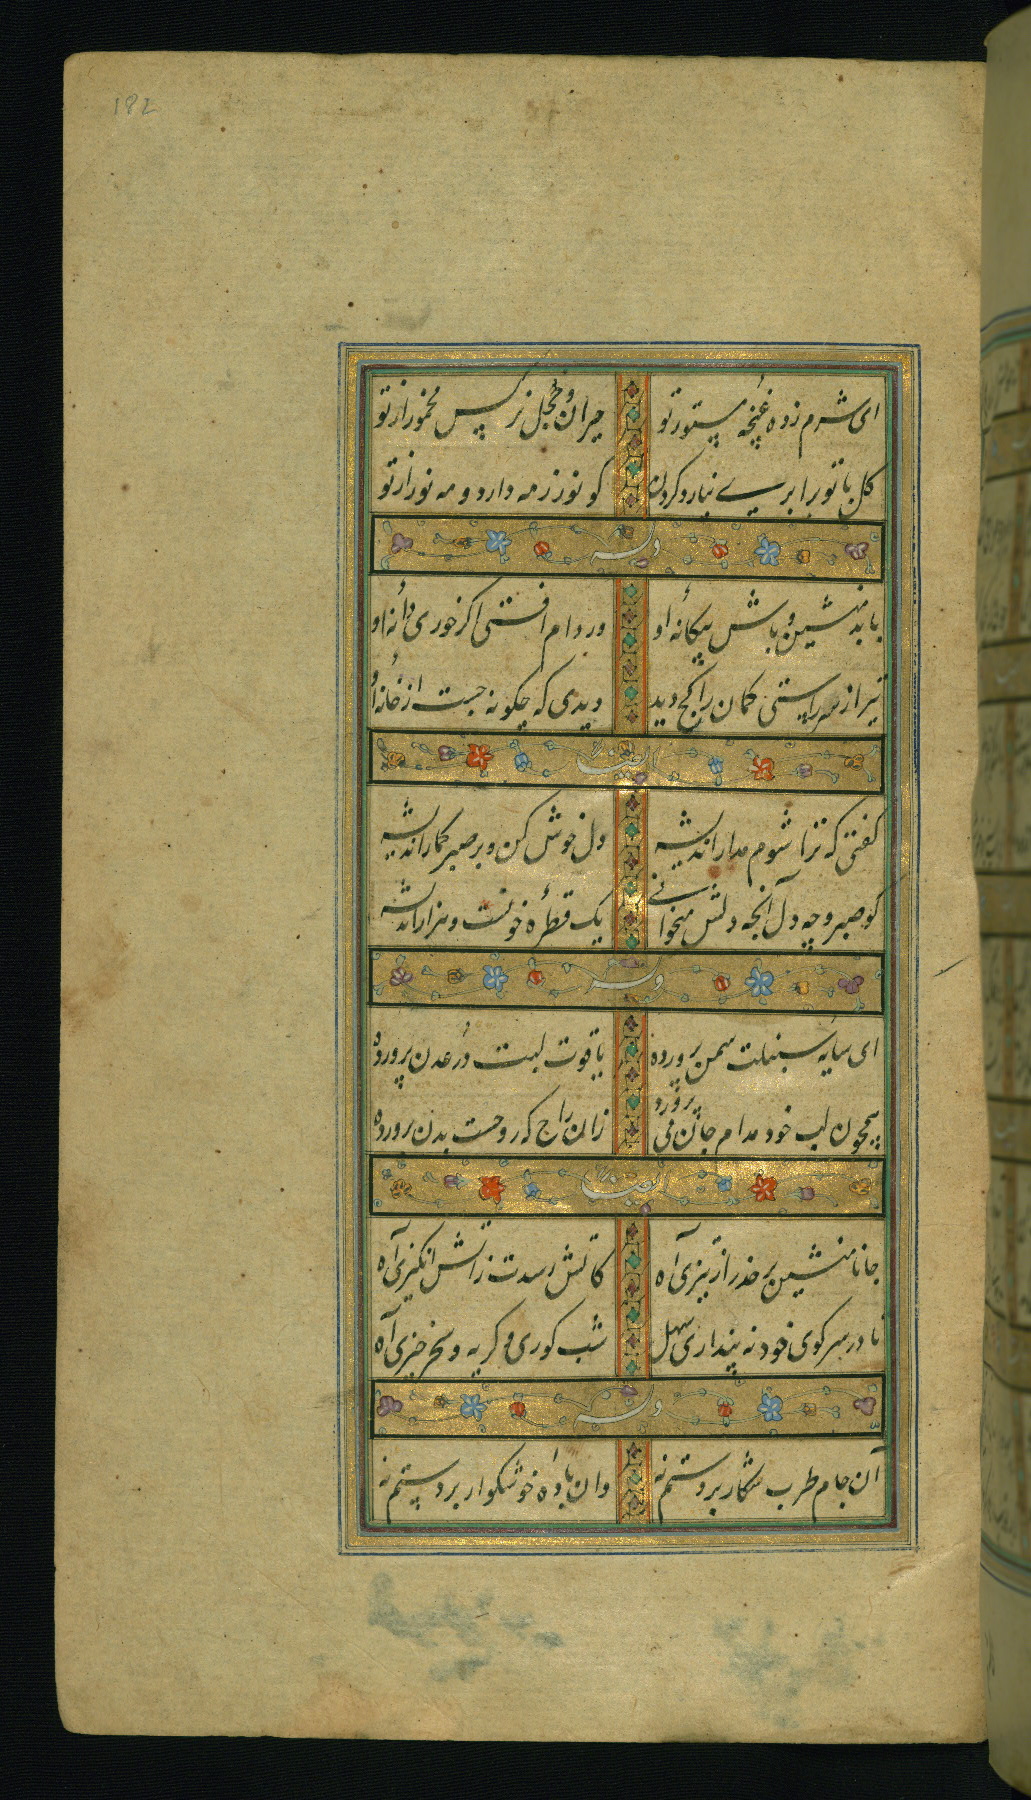 182
ای شرم زده غنچهٔ مستور از تو
حیران و خجل نرگس مخمور از تو
گل با تو برابری نیارد کردن
کو نور ز مه دارد و مه نور از تو
وله
با بد منشین و باش بیگانهٔ او
در دام افتی اگر خوری دانهٔ او
تیر از سر راستی کمان را کج دید
دیدی که چگونه جست از خانهٔ او
ایضا
گفتی که ترا شوم مدار اندیشه
دل خوش کن و بر صبر گمار اندیشه
کو صبر و چه دل آنچه دلش میخوانی
یک قطرهٔ خونست و هزار اندیشه
وله
ای سایهٔ سنبلت سمن پرورده
یاقوت لبت در عدن پرورده
همچون لب خود مدام جان می پرورد
زان راح که روحست بدن پرورده
ایضا
کاتش
شب کوری و گریه و سحر خیزی آه
وله
آن جام طرب شکار بر دستم نه
وان بادهٔ خوشگوار بر دستم نه